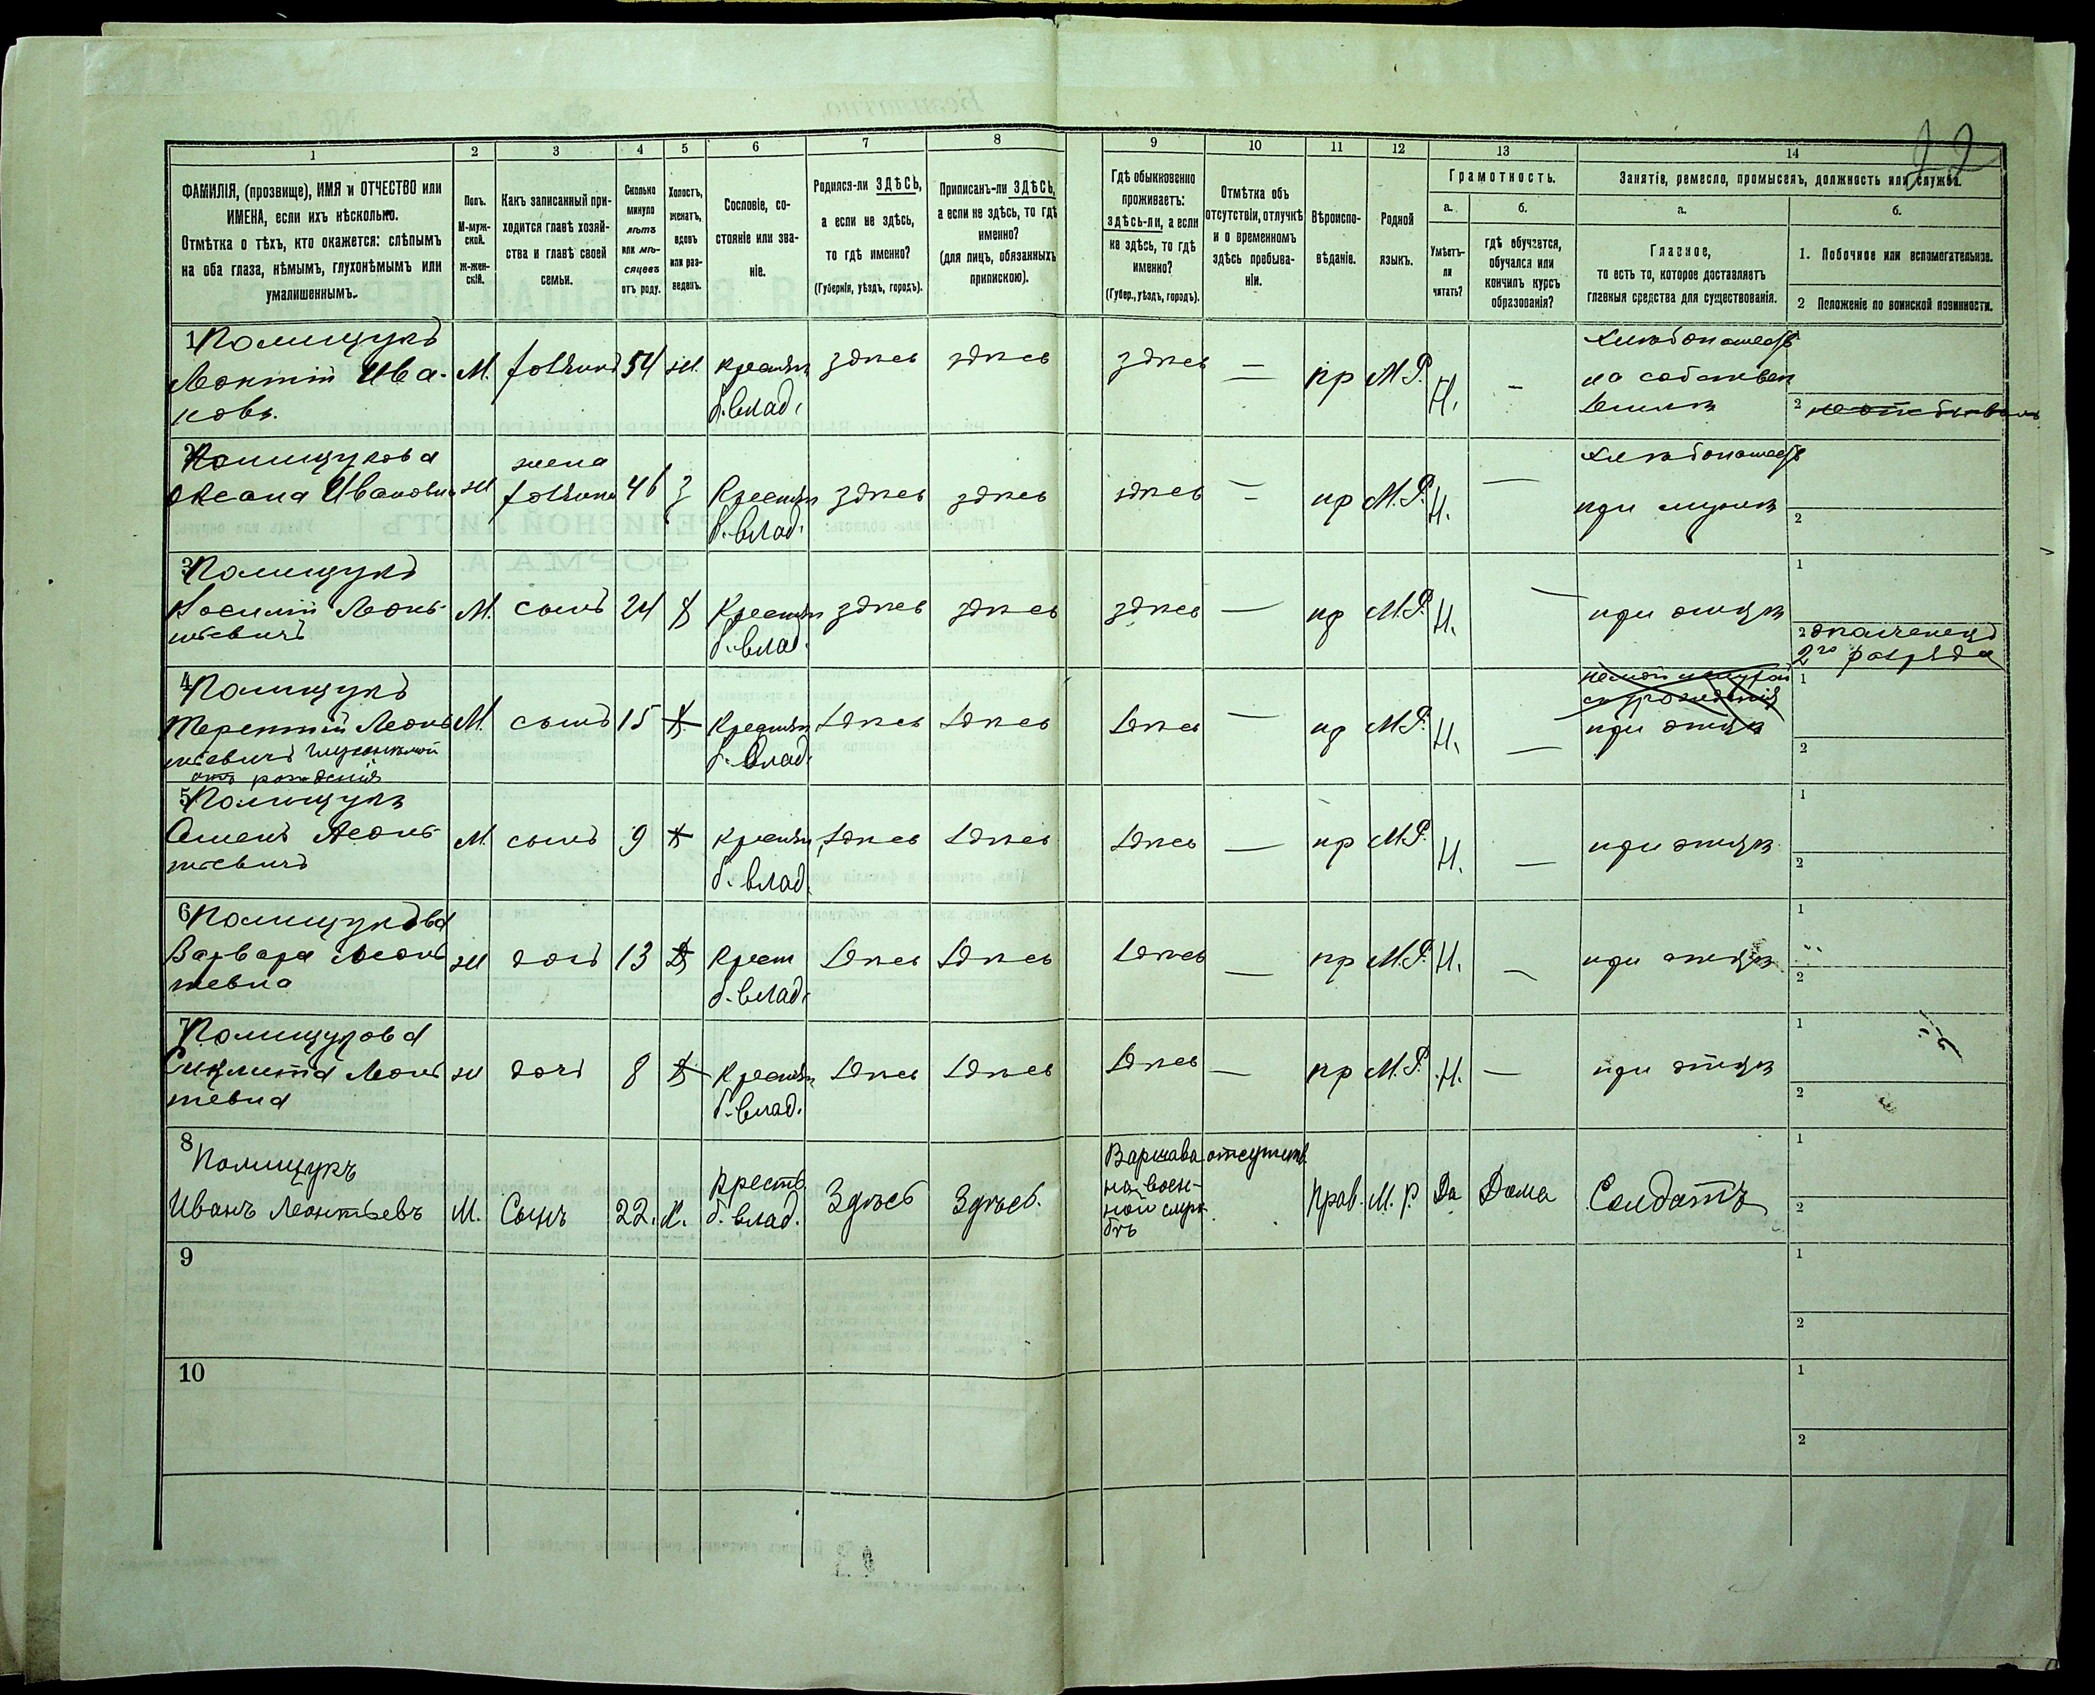 22
1 2 3 4 5 6 7 8 9 10 11 12 13 14
ФАМИЛІЯ, (прозвище), ИМЯ и ОТЧЕСТВО или
ИМЕНА, если ихъ нѣсколько.
Отмѣтка о тѣхъ, кто окажется: слѣпымъ
на оба глаза, нѣмымъ, глухонѣмымъ или
умалишеннымъ.
Полъ.
М-муж-
ской.
ж-жен-
скій.
Какъ записанный при-
ходится главѣ хозяй-
ства и главѣ своей
семьи.
Сколько
минуло
лѣтъ
или мѣ-
сяцевъ
отъ роду.
Холостъ,
женатъ,
вдовъ
или раз-
веденъ.
Сословіе, со-
стояніе или зва-
ніе.
Родился-ли ЗДѢСЬ,
а если не здѣсь,
то гдѣ именно?
(Губернія, уѣздъ, городъ).
Приписанъ-ли ЗДѢСЬ,
а если не здѣсь, то гдѣ
именно?
(для лицъ, обязанныхъ
припискою).
Гдѣ обыкновенно
проживаетъ:
здѣсь-ли, а если
не здѣсь, то гдѣ
именно?
(Губер., уѣздъ, городъ).
Отмѣтка объ
отсутствіи, отлучкѣ
и о временномъ
здѣсь пребыва-
ніи.
Вѣроиспо-
вѣданіе.
Родной
языкъ.
Грамотность.
а.
Умѣетъ-
ли
читать?
б.
гдѣ обучается,
обучался или
кончилъ курсъ
образованія?
Занятіе, ремесло, промыселъ, должность или служба.
а.
Главное,
то есть то, которое доставляетъ
главныя средства для существованія.
б.
1. Побочное или вспомогательное.
2 Положеніе по воинской повинности.
1 Полищукъ
Леонтій Ива-
новъ.
М. 54 ж. крестьян
б. влад.
здѣсь здѣсь здѣсь — пр М.Р. Н. —
на собствен
2
2 Полищукова
Оксана Ивановна
ж жена
46 З Крестьян
б. влад.
здѣсь здѣсь здѣсь — пр М.Р. Н. —
при мужѣ
2
3 Полищукъ
Василій Леонь-
тіевичъ
М. сынъ 24 Х Крестьян
б. влад.
здѣсь здѣсь здѣсь — пр М.Р. Н. —
при отцѣ
1
2 ополченецъ
2го розряда
4 Полищукъ
Терентій Леонь
тіевичъ глухонѣмой
отъ рожденія
М. сынъ 15 Х Крестьян
б. влад.
Здѣсь Здѣсь Здѣсь — пр М.Р. Н. —
при отцѣ
1
2
5 Полищукъ
Семенъ Леонь-
тіевичъ
М. сынъ 9 Х крестьян
б. влад.
Здѣсь Здѣсь Здѣсь — пр М.Р. Н. —
при отцѣ
1
2
6 Полищукова
Варвара Леонь
тевна
ж дочь 13 Крест
б. влад.
Здѣсь Здѣсь Здѣсь — пр М.Р. Н. —
при отцѣ
1
2
7 Полищукова
Леонь
тевна
ж дочь 8 Крестьян
б. влад.
Здѣсь Здѣсь Здѣсь — пр М.Р. Н. —
при отцѣ
1
2
8 Полищукъ
Иванъ Леонтьевъ
М. Сынъ 22. Х. Кресть
б. влад.
Здѣсь Здѣсь.
Варшава
на воен-
ной служ
бѣ
отсутств.
Прав. М. Р. Да Дома Солдатъ
1
2
9
1
2
10
1
2